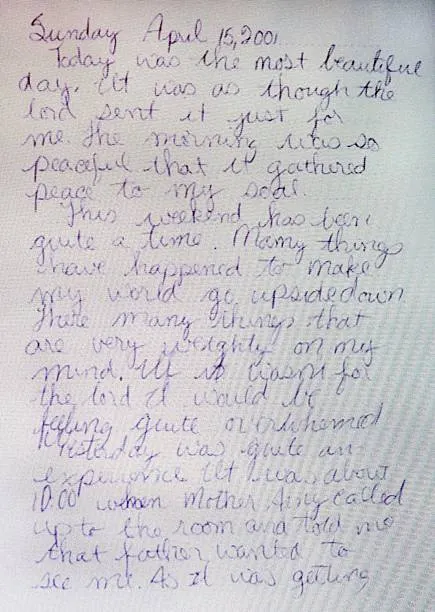 Sunday April 15, 2001
Today was the most beautiful
day. It was as though the
lord sent it just for
me. The morning was so
peaceful that it gathered
peace to my soul.
This weekend has been
quite a time. Many things
have happened to make
my world go upsidedown
There many things that
are very weighty on my
mind. If it wasnt for
the lord I would be
feeling quite overwhemed
Yesterday was quite an
experience. It was about
10:00 when Mother called
up to the room and told me
that father wanted to
see me. As I was getting